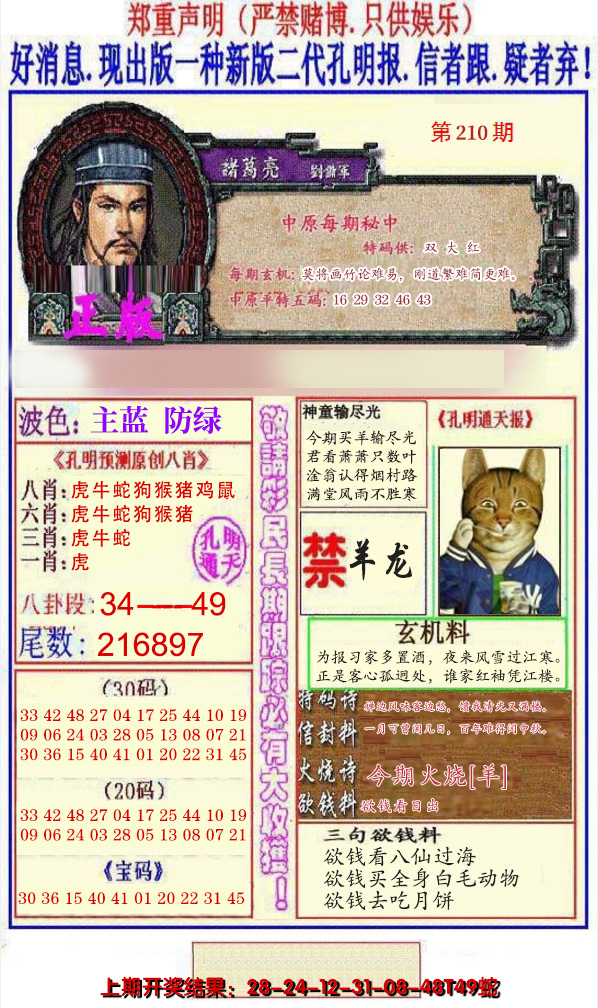 郑重声明（严禁赌博.只供娱乐）
好消息.现出版一种新版二代孔明报.信者跟.疑者弃！
第210期
諸葛亮 劉備軍
中原每期秘中
特码供：双大红
每期玄机：莫将画竹论难易，刚道繁难简更难。
中原平特五码：16 29 32 46 43
正版
波色：主蓝 防绿
《孔明预测原创八肖》
八肖：虎牛蛇狗猴猪鸡鼠
六肖：虎牛蛇狗猴猪
三肖：虎牛蛇
一肖：虎
孔明
通天
八卦段：34-----49
尾数：216897
（30码）
33 42 48 27 04 17 25 44 10 19
09 06 24 03 28 05 13 08 07 21
30 36 15 40 41 01 20 22 31 45
（20码）
33 42 48 27 04 17 25 44 10 19
09 06 24 03 28 05 13 08 07 21
《宝码》
30 36 15 40 41 01 20 22 31 45
敬請彩民長期跟踪必有大收獲！
神童输尽光
今期买羊输尽光
君看萧萧只数叶
淦翁认得烟村路
满堂风雨不胜寒
《孔明通天报》
禁羊龙
玄机料
为报习家多置酒，夜来风雪过江寒。
正是客心孤迥处，谁家红袖凭江楼。
特码诗 鲜边风味客边愁，馈我清光又满楼。
信封料 一月可曾闲几日，百年难得闰中秋。
火烧诗 今期火烧[羊]
欲钱料 欲钱看日出
三句欲钱料
欲钱看八仙过海
欲钱买全身白毛动物
欲钱去吃月饼
上期开奖结果：28-24-12-31-08-48T49蛇